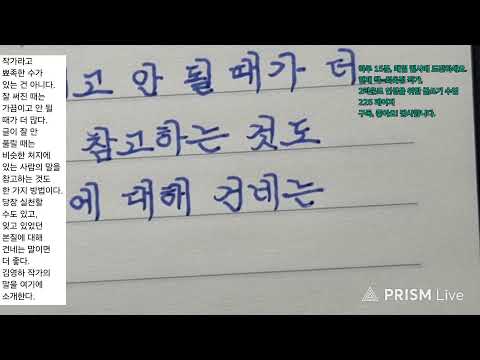 작가라고
뾰족한 수가
있는 건 아니다.
잘 써진 때는
가끔이고 안 될
때가 더 많다.
글이 잘 안
풀릴 때는
비슷한 처지에
있는 사람의 말을
참고하는 것도
한 가지 방법이다.
당장 실천할
수도 있고,
잊고 있었던
본질에 대해
건네는 말이면
더 좋다.
김영하 작가의
말을 여기에
소개한다.
고 안 될 때가 더
참고하는 것도
에 대해 건네는
하루 15분, 매일 필사에 도전하세요.
226 페이지
구독, 좋아요! 감사합니다.
PRISM Live